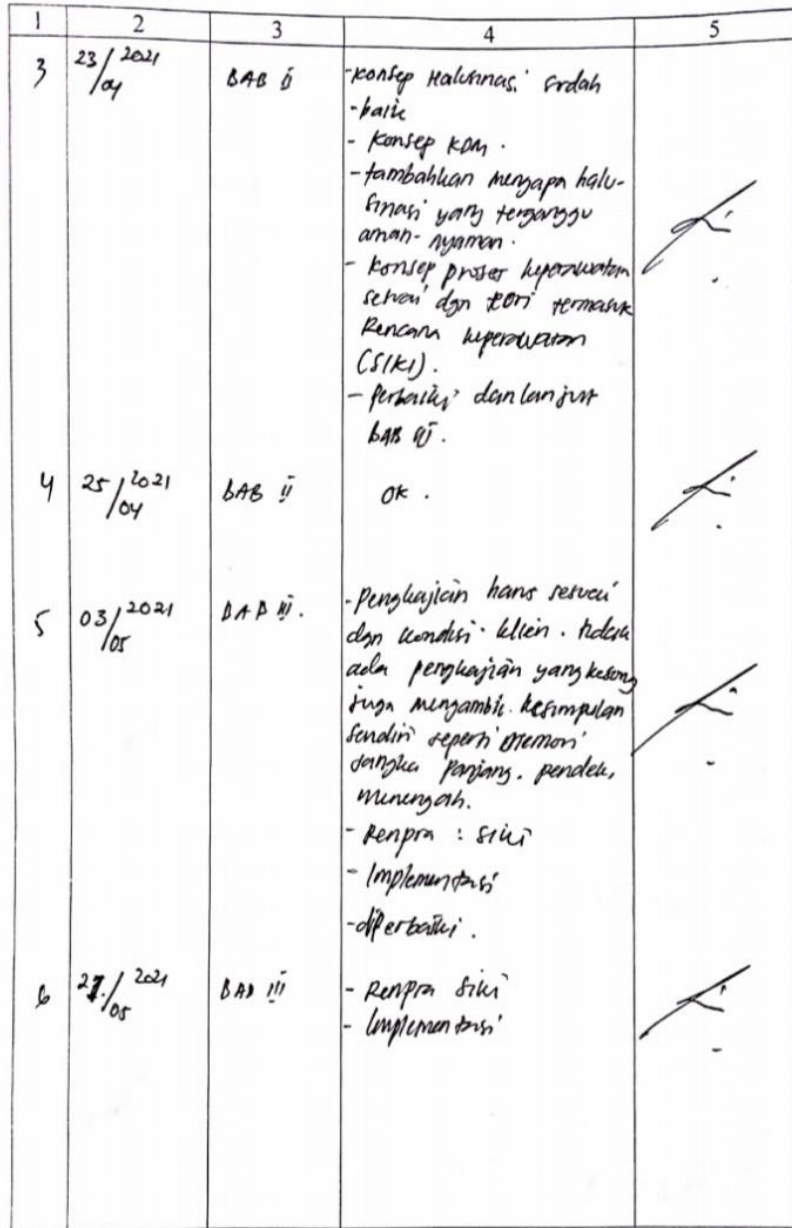 1 2 3 4 5
3 23/04 2021 BAB II -konsep Halusinasi sudah
-baik
- Konsep KDM.
-tambahkan mengapa halu-
sinasi yang terganggu
aman-nyaman.
- Konsep proses keperawatan
sesuai dgn teori termasuk
Rencana keperawatan
(SIKI).
- Perbaiki dan lanjut
BAB III.
4 25/04 2021 BAB II OK.
5 03/05 2021 BAB III. -Pengkajian harus sesuai
dgn kondisi klien. tidak
ada pengkajian yang kosong
juga mengambil kesimpulan
sendiri seperti memori
jangka panjang, pendek,
menengah.
- Renpra : SIKI
- Implementasi
-diperbaiki.
6 /05 2021 BAB III - Renpra SIKI
- Implementasi